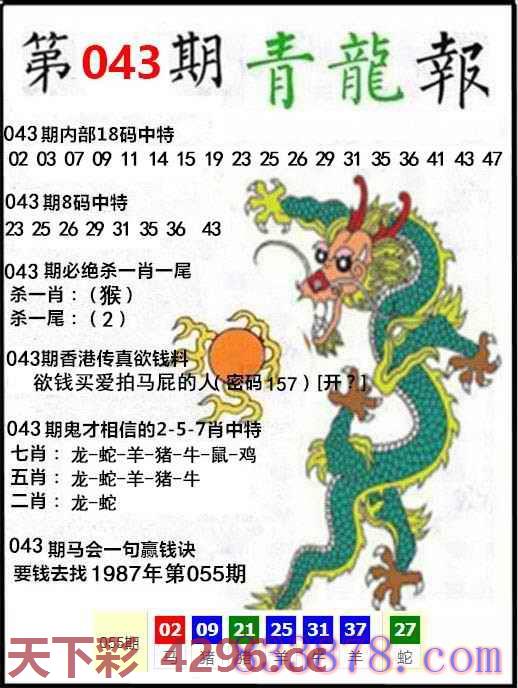 第043期青龍報
043期内部18码中特
02 03 07 09 11 14 15 19 23 25 26 29 31 35 36 41 43 47
043期8码中特
23 25 26 29 31 35 36 43
043期必绝杀一肖一尾
杀一肖：（猴）
杀一尾：（2）
043期香港传真欲钱料
欲钱买爱拍马屁的人（密码157）[开？]
043期鬼才相信的2-5-7肖中特
七肖：龙-蛇-羊-猪-牛-鼠-鸡
五肖：龙-蛇-羊-猪-牛
二肖：龙-蛇
043期马会一句赢钱诀
要钱去找1987年第055期
055期 02 09 21 25 31 37 27
猪 羊 羊 蛇
天下彩 4296.cc